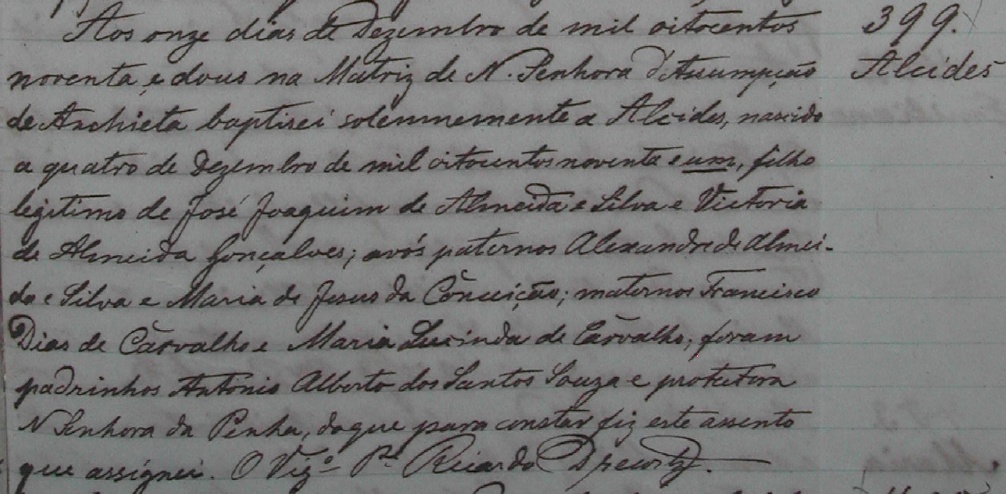 Aos onze dias de Dezembro de mil oitocentos
noventa e dous na Matriz de N. Senhora d'Assumpção
de Anchieta baptisei solemnemente a Alcides, nascido
a quatro de Dezembro de mil oitocentos noventa e um, filho
legitimo de José Joaquim de Almeida e Silva e Victoria
de Almeida Gonçalves; avós paternos Alexandre de Almei-
da e Silva e Maria de Jesus da Conceição; maternos Francisco
Dias de Carvalho e Maria Lucinda de Carvalho; foram
padrinhos Antonio Alberto dos Santos Souza e protectora
N Senhora da Penha, do que para constar fiz este assento
que assignei. O Vigº Pe. Ricardo
399.
Alcides